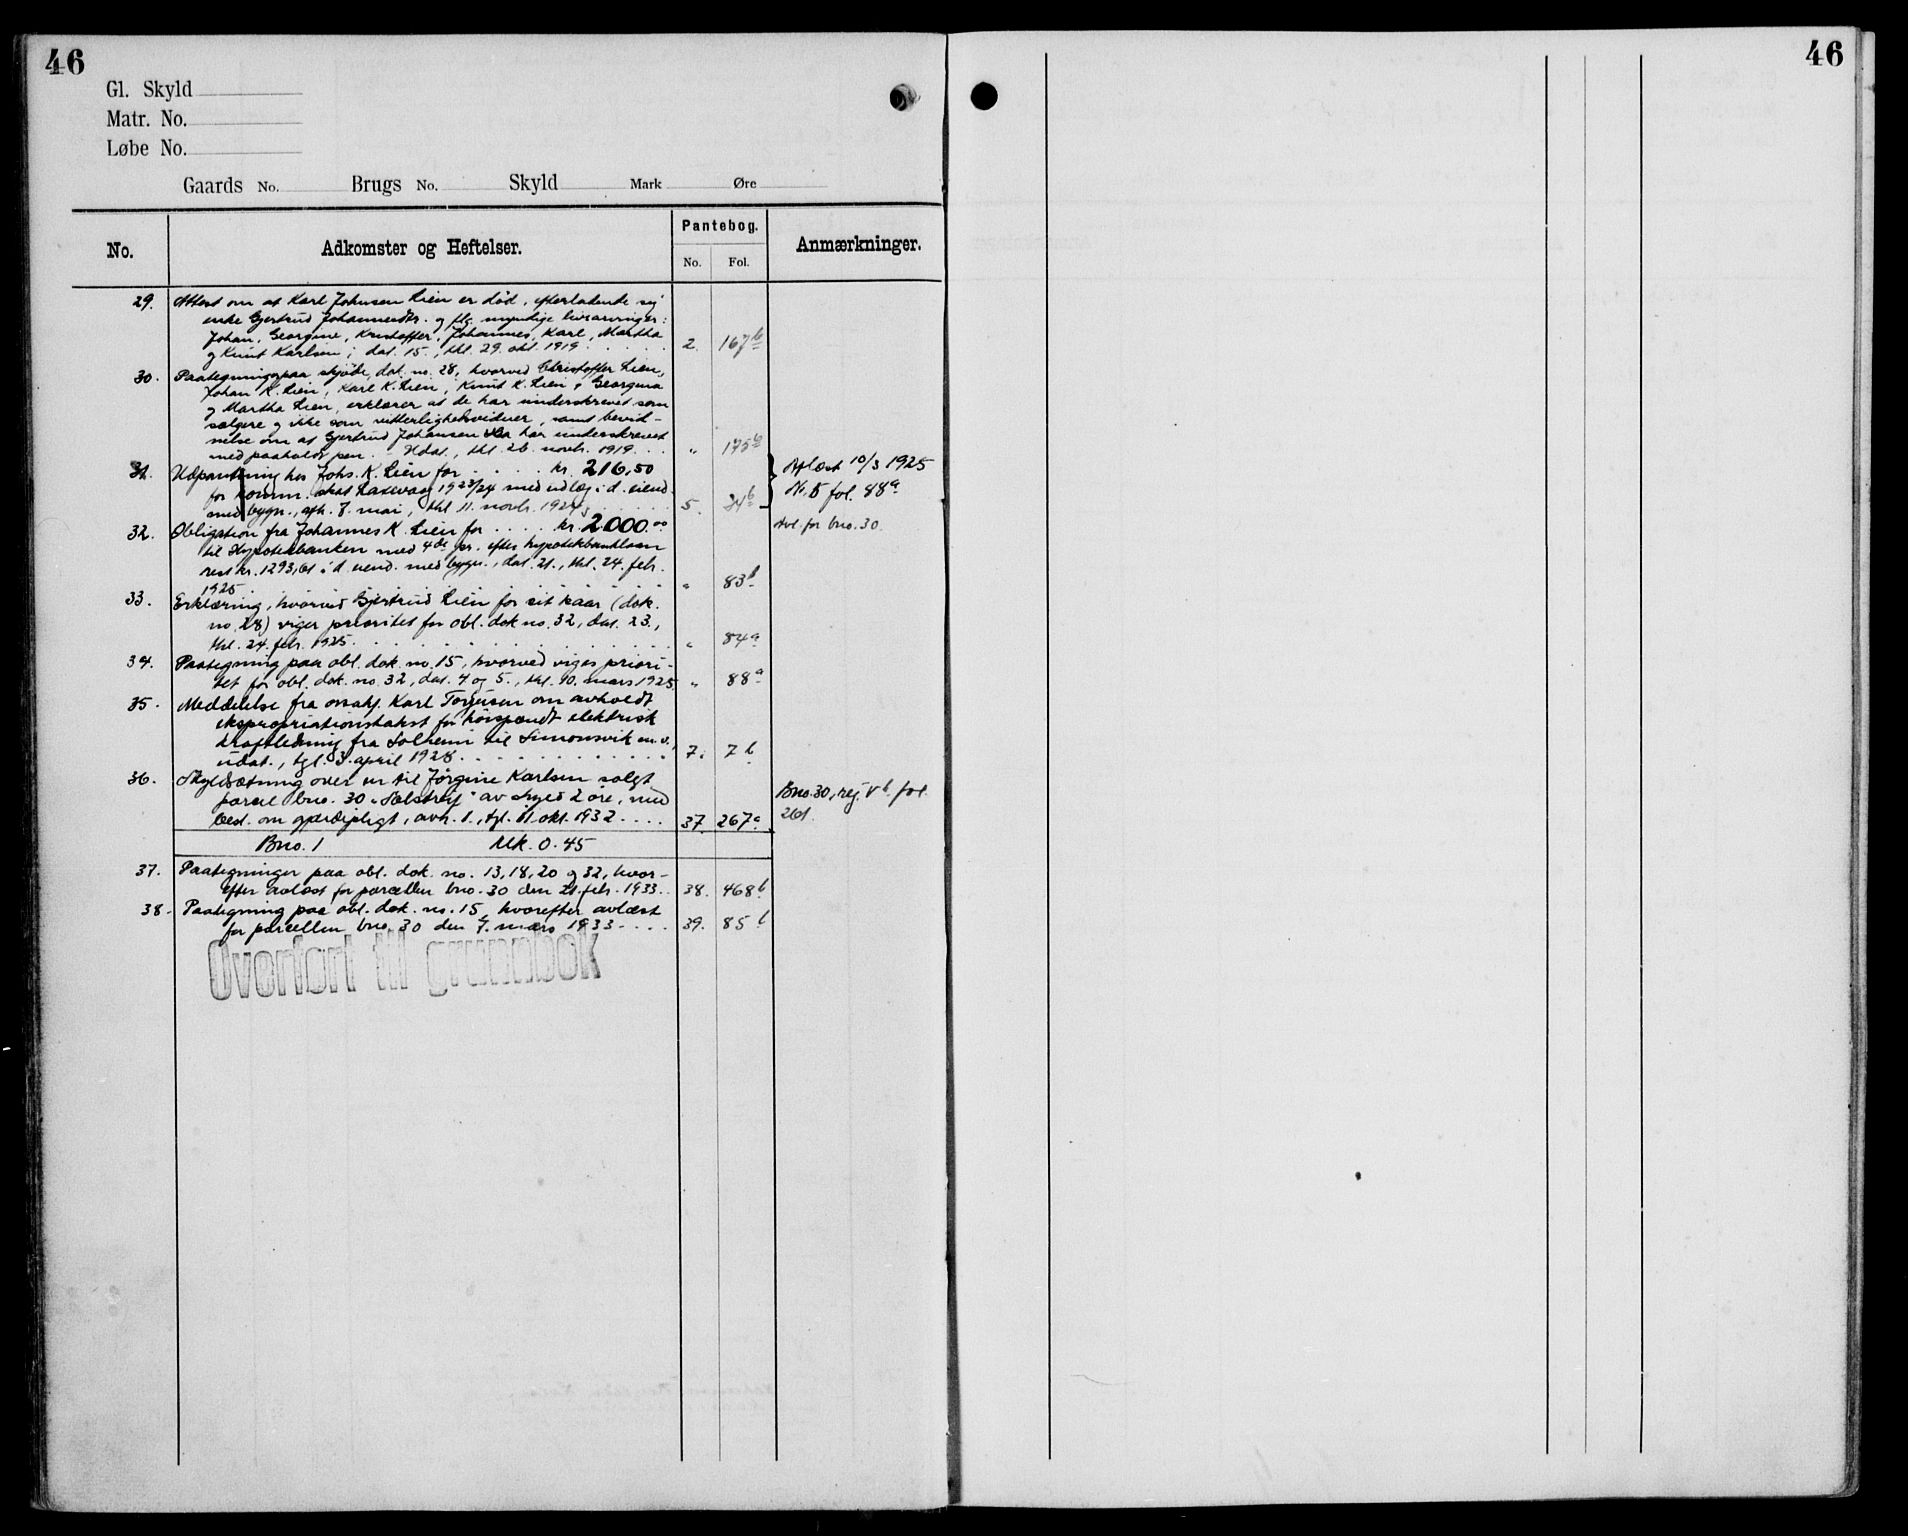 46
46
Gl. Skyld
Matr. No.
Løbe No.
Gaards No. Brugs No. Skyld Mark Øre
No. Adkomster og Heftelser. Pantebog. Anmærkninger.
No. Fol.
29. Attest om at Karl Johnsen Lien er død, efterlatende sig
enke Gjertrud Johannesdtr. og flg. myndige livsarvinger:
Johan, Georgine, Kristoffer, Johannes, Karl, Martha
og Knut Karlsen; dat. 15., thl. 29. okt. 1919 2. 167b
30. Paategning paa skjøde, dok. no. 28, hvorved Christoffer Lien,
Johan K. Lien, Karl K. Lien, Knut K. Lien, Georgina
og Martha Lien, erklærer at de har underskrevet som
sælgere og ikke som vitterlighetsvidner, samt bevid-
nelse om at Gjertrud Johansen har underskrevet
med paaholdt pen. Udat., thl. 26. novbr. 1919 " 175b
31. Udpantning hos Johs. K. Lien for kr. 216,50
for komm. skat Laxevaag 1923/24 med udlæg i d. eiend.
med bygn., afh. 8. mai, thl. 11. novbr. 1924 5. 34b
Aflæst 10/3 1925
No. 5 fol. 88a
32. Obligation fra Johannes K. Lien for kr. 2000.00
til Hypotekbanken med 4de pr. efter hypotekbanklaan
rest kr. 1293,61 i d. eiend. med bygn., dat. 21., thl. 24. febr.
1925 " 83b
Avl. for bno. 30.
33. Erklæring, hvorved Gjertrud Lien for sit kaar (dok.
no. 28) viger prioritet for obl. dok no. 32, dat. 23.,
thl. 24. febr. 1925 " 84a
34. Paategning paa obl. dok. no. 15, hvorved viges priori-
tet for obl. dok. no. 32, dat. 4 og 5., thl. 10. mars 1925. " 88a
35. Meddelelse fra orsakf. Karl Torjusen om avholdt
ekspropriationstakst for høispændt elektrisk
kraftledning fra Solheim til Simonsvik m.v.,
udat., tgl. 3. april 1928 7. 7b
36. Skyldsætning over en til Jørgine Karlsen solgt
parcel bno. 30 "Solstrøk" av skyld 2 øre, med
best. om gjerdepligt, avh. 1., tgl. 11. okt. 1932 37. 267a
Bno. 30, rej. V b. fol.
261.
Bno. 1 Mk. 0.45
37. Paategninger paa obl. dok. no. 13, 18, 20 og 32, hvor-
efter avlæst for parcellen bno. 30 den 21. febr. 1933. 38. 468b
38. Paategning paa obl. dok. no. 15, hvorefter avlæst
for parcellen bno. 30 den 7. mars 1933 39. 85b
Overført til grunnbok